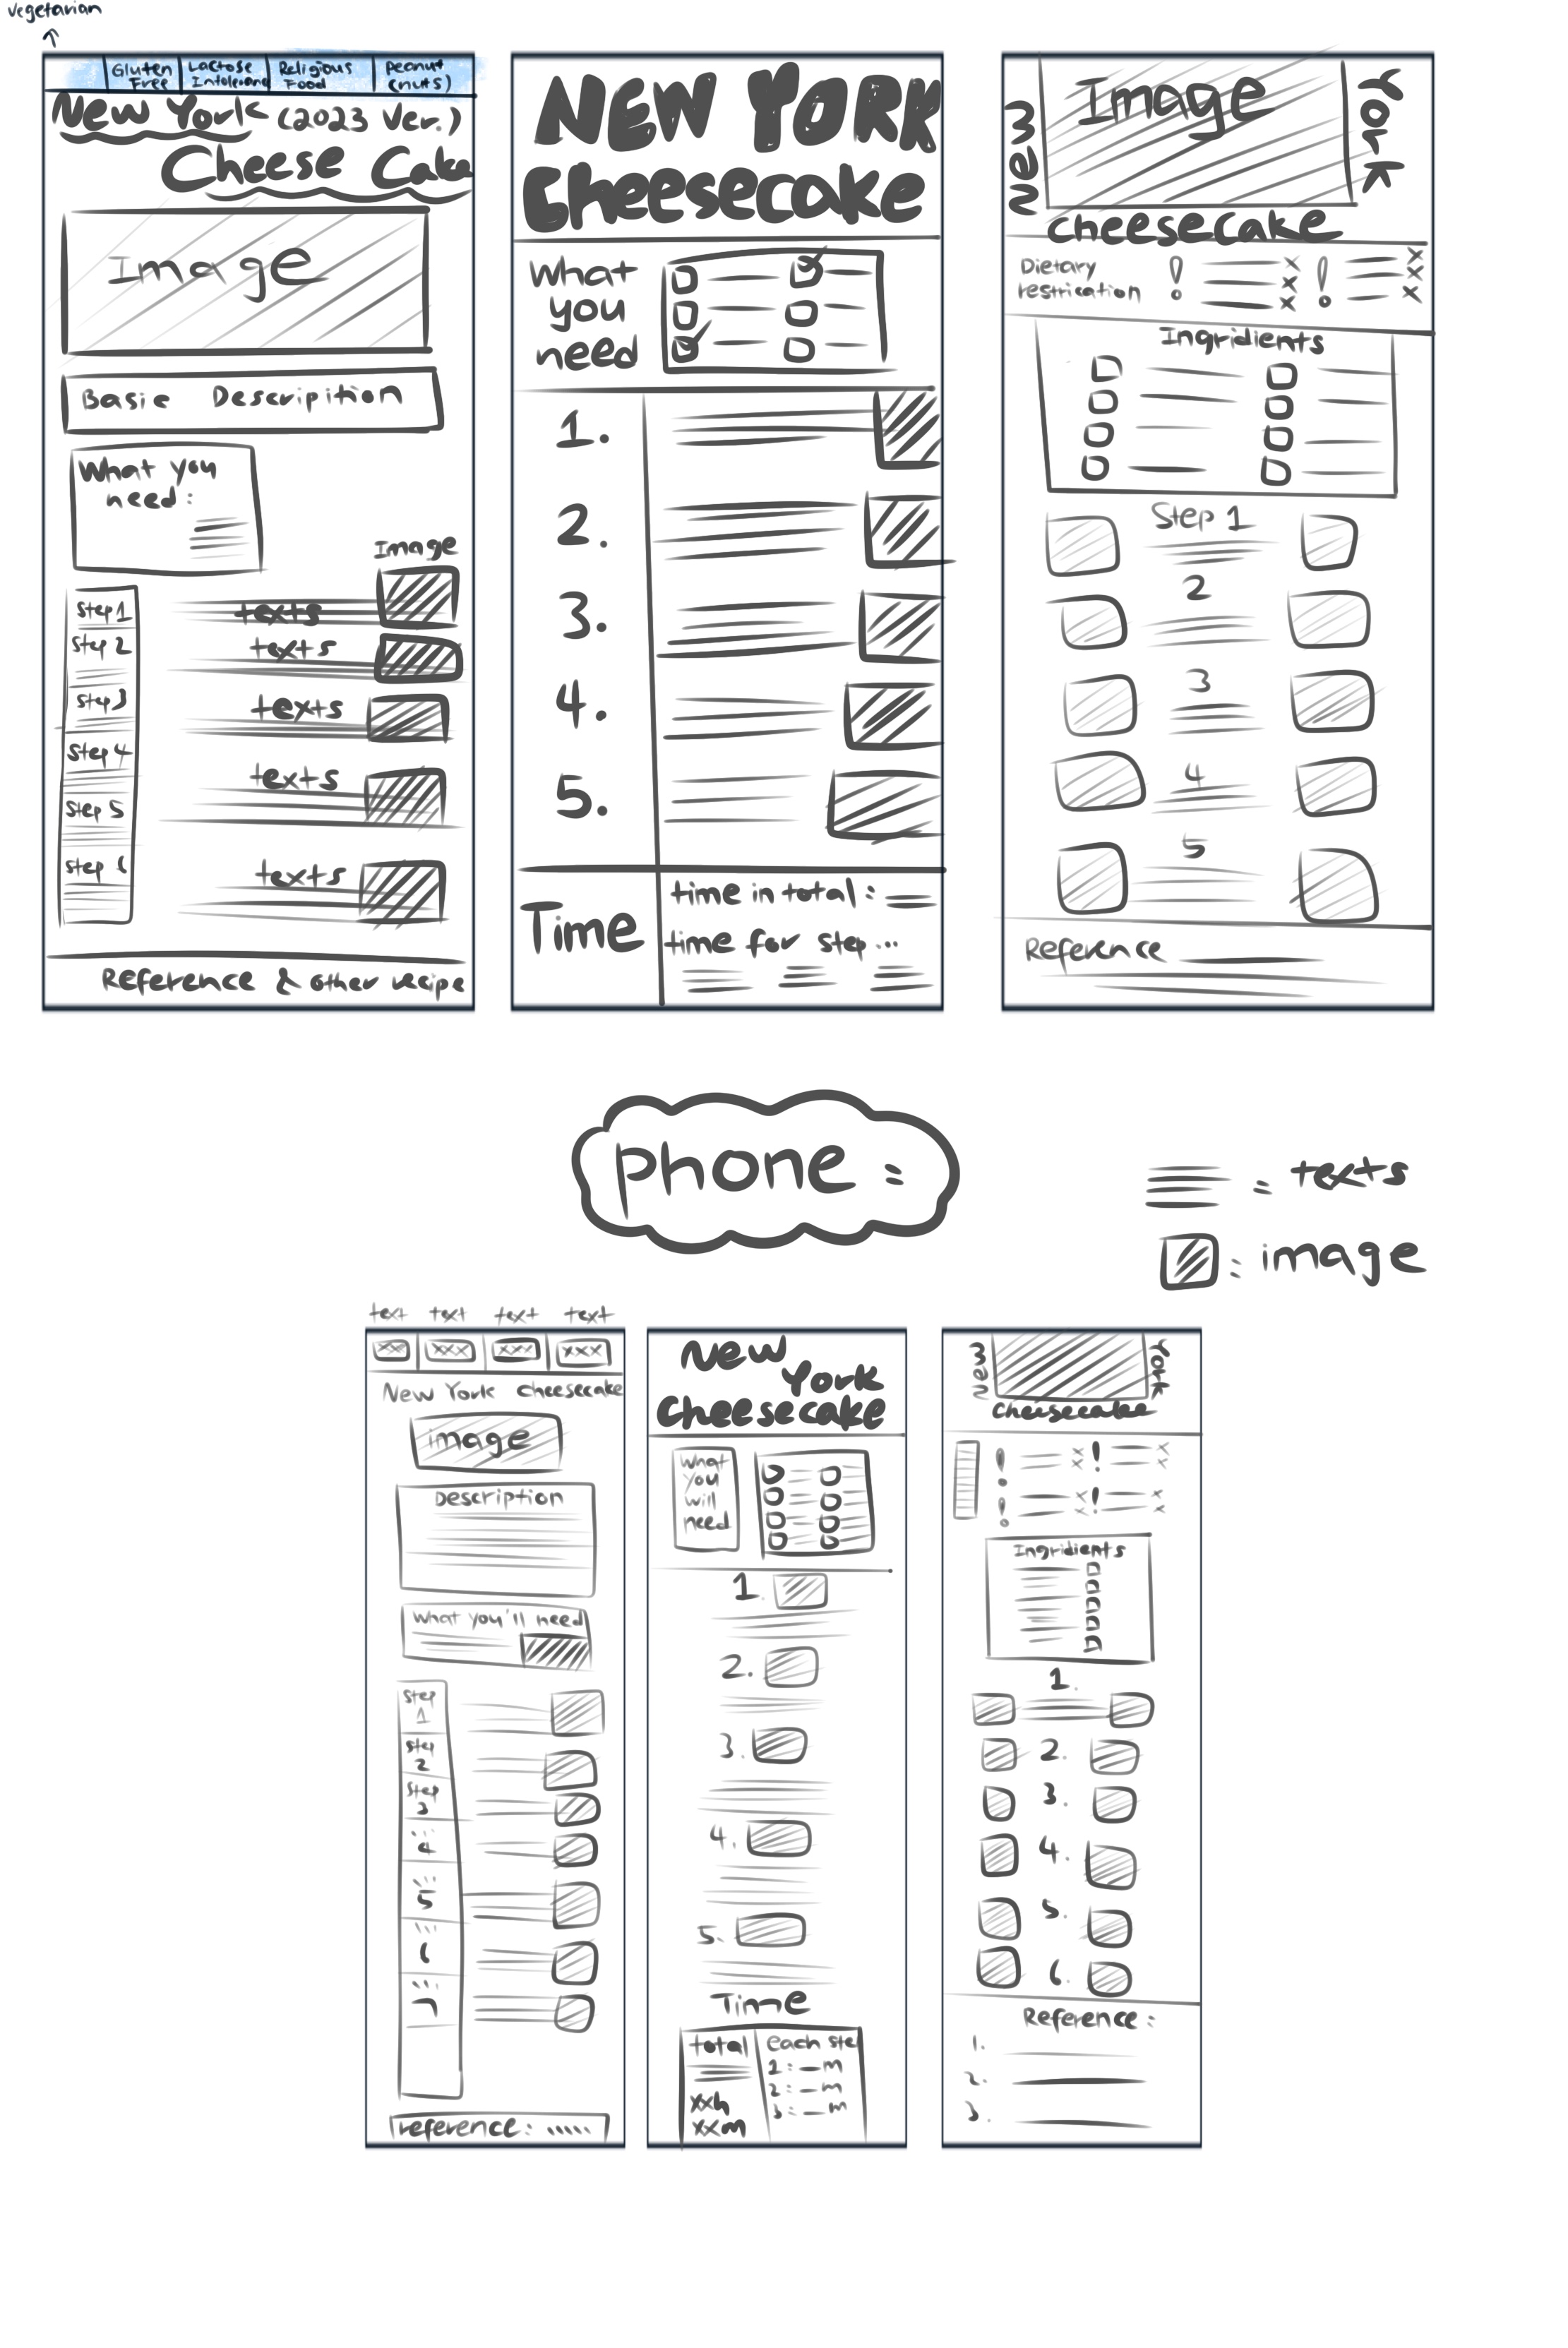 vegetarian
Gluten Free
Lactose Intolerant
Religious Food
Peanut (nuts)
New York (2023 Ver.)
Cheese Cake
Image
Basic Descripition
What you
need:
Image
Step 1
texts
Step 2
texts
Step 3
texts
Step 4
texts
Step 5
Step 6
texts
Reference & other recipe
NEW YORK
Cheesecake
What
you
need
1.
2.
3.
4.
5.
Time
time in total:
time for step...
New
Image
York
cheesecake
Dietary
restrication
! x x x ! x x x
Ingridients
Step 1
2
3
4
5
Reference
phone:
= texts
: image
text text text text
xx xxx xxx xxx
New York cheesecake
image
Description
What you'll need
Step
1
Step
2
Step
3
4
5
6
7
reference:
New
York
Cheesecake
What
you
will
need
1.
2.
3.
4.
5.
Time
total
xxh
xxm
Each ste
1: — m
2: — m
3: — m
New
York
cheesecake
! x x ! x x
! x x ! x x
Ingridients
1.
2.
3.
4.
5.
6.
Reference:
1.
2.
3.